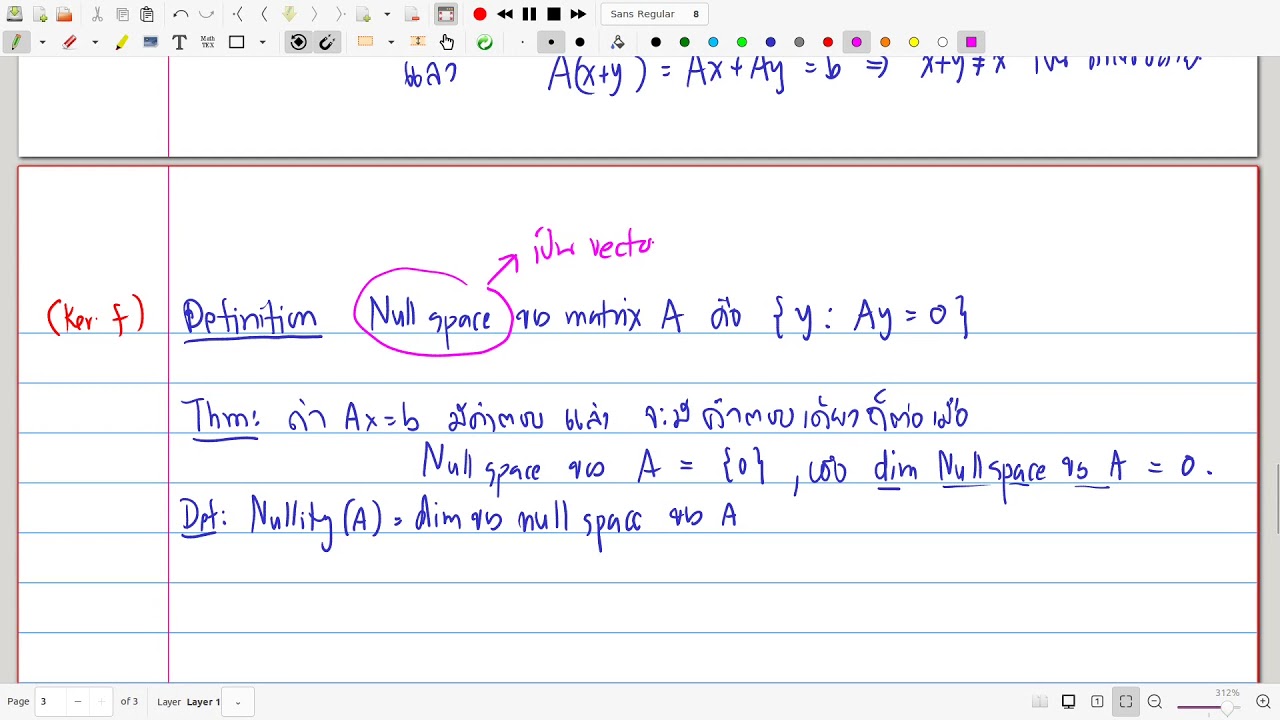 Math
TEX
Sans Regular 8
แล้ว A(x+y) = Ax + Ay = b ⇒ x+y ≠ x
เป็น vecto
(Ker f) Definition Null space ของ matrix A คือ { y : Ay = 0 }
Thm: ถ้า Ax=b มีคำตอบ แล้ว จะมี คำตอบเดียวก็ต่อเมื่อ
Null space ของ A = {0} , dim Null space ของ A = 0.
Def: Nullity (A) = dim ของ null space ของ A
Page 3 of 3 Layer Layer 1
312%